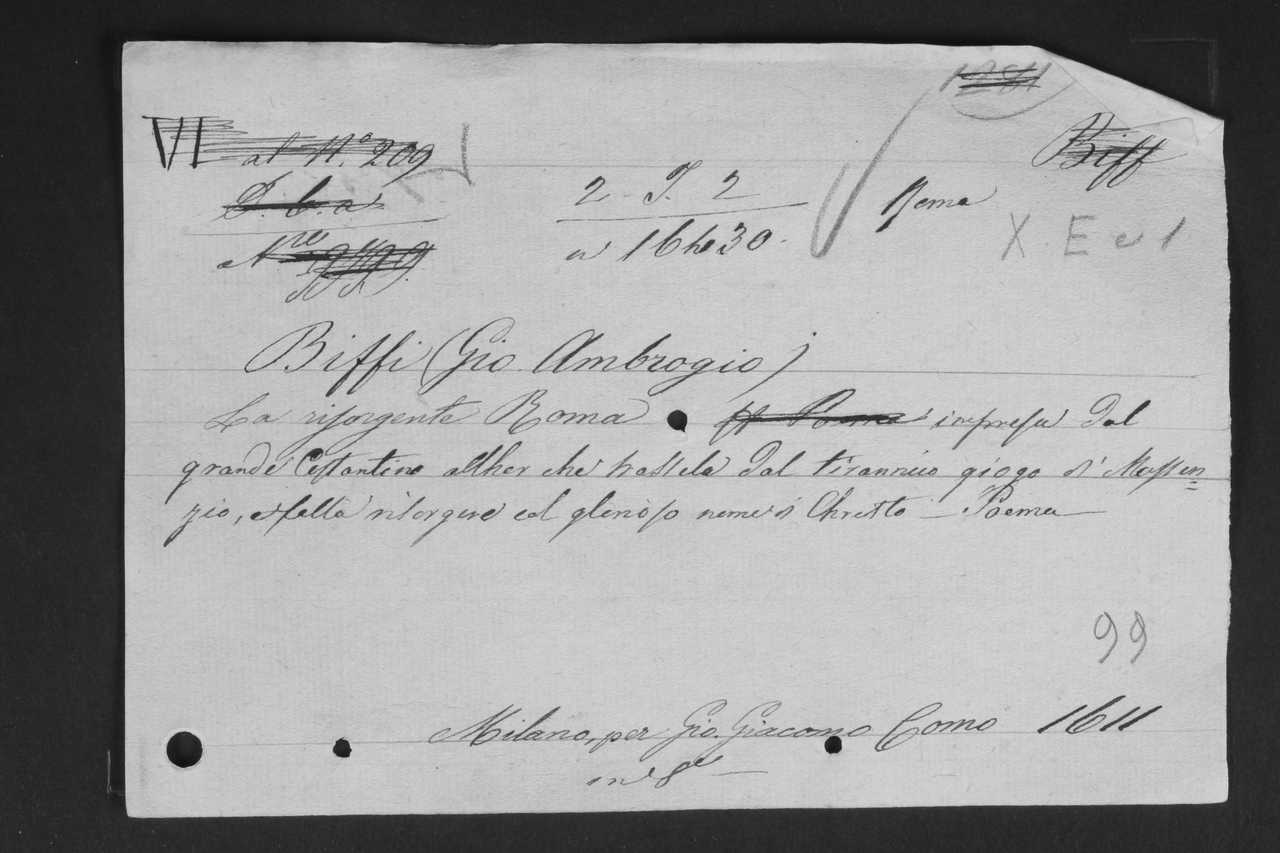 VI al N.º 209
Biff
2 - T. 2
Roma
X E e 1
a 16 h 30.
Biffi (Gio. Ambrogio)
La risorgente Roma Poema impresa dal
grande Costantino allhor che trassela dal tirannico giogo di Massen=
zio, e falla risorgere col glorioso nome di Christo — Poema —
99
Milano, per Gio. Giacomo Como 1611
in 8º —